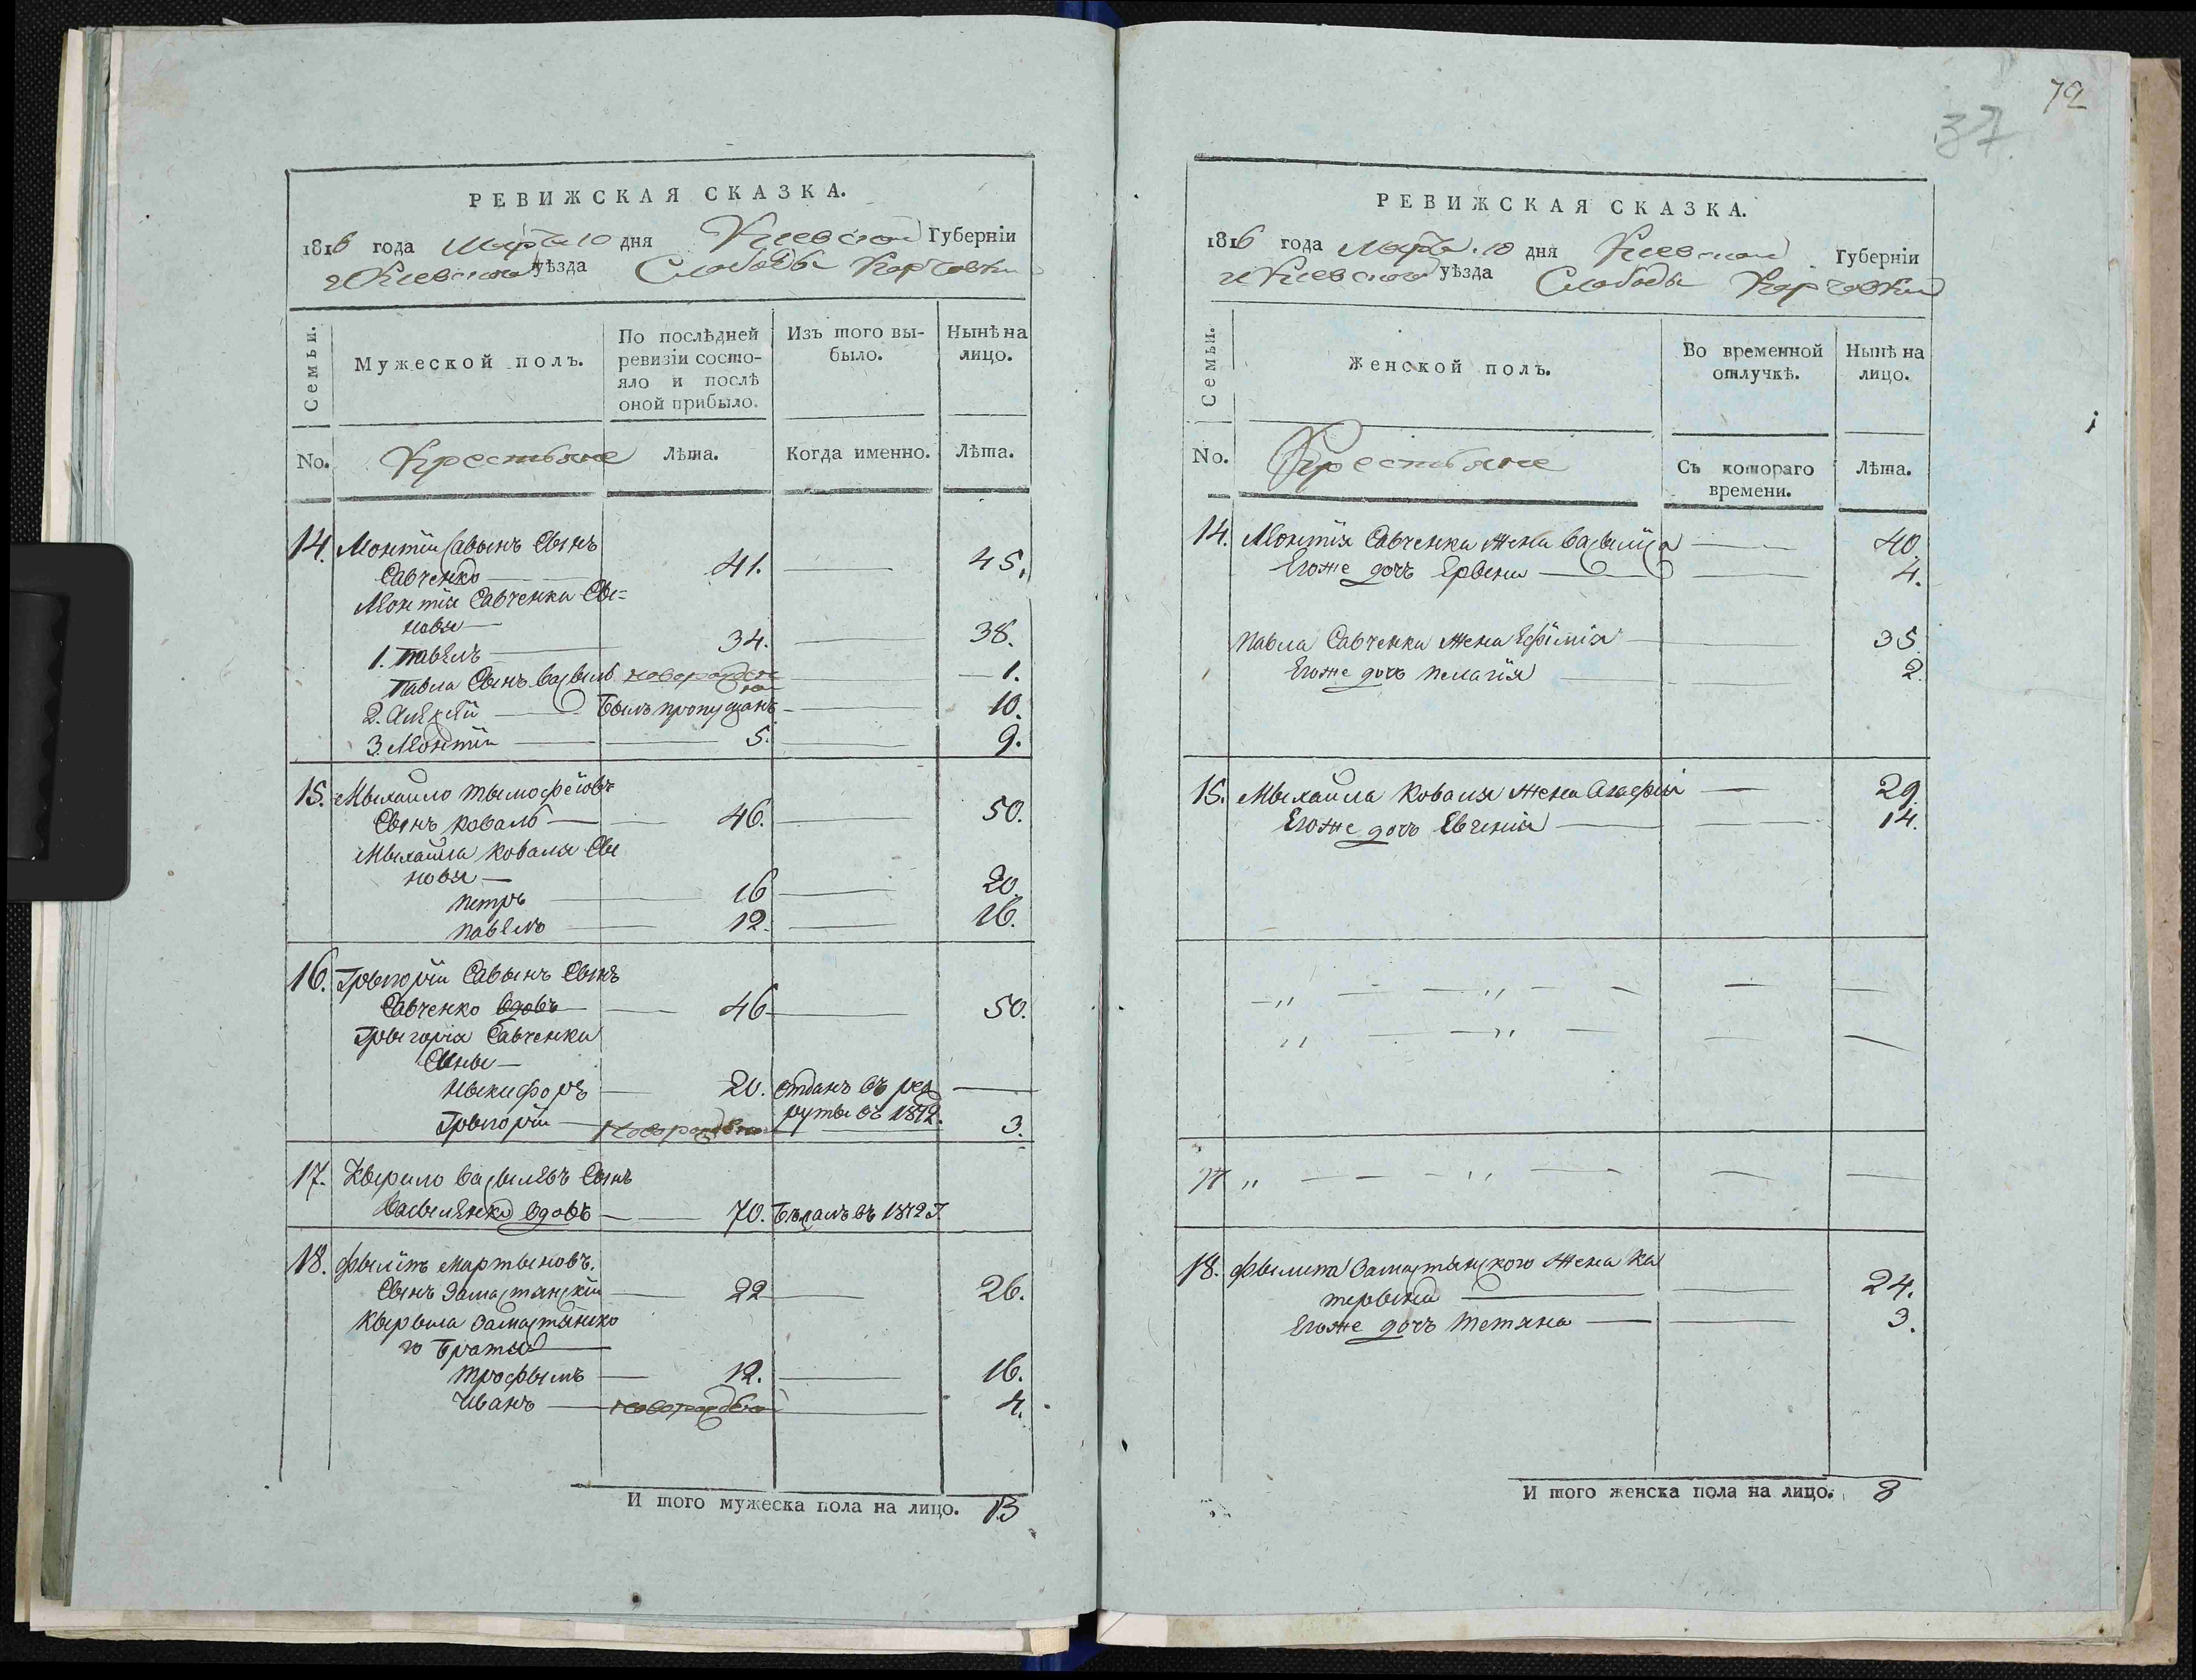 72
37.
РЕВИЖСКАЯ СКАЗКА.
1816 года Марта 10 дня Киевской Губерніи
Киевского уѣзда Слободы Карповки
Семьи.
Мужеской полъ.
По послѣдней ревизіи состояло и послѣ оной прибыло.
Изъ того выбыло.
Нынѣ на лицо.
No. Крестьяне Лѣта. Когда именно. Лѣта.
14. Монтій Савынъ Сынъ
Савченко — 41. — 45.
Монтія Савченка Сы=
новья —
1. Павелъ — 34. — 38.
Павла Сынъ Васыль новорожден — 1.
2. Алексѣй — былъ пропущенъ — 10.
3. Монтій — 5. — 9.
15. Мыхайло Тымофеювъ
Сынъ Коваль — 46. — 50.
Мыхайла Коваля Сы
новья —
Петръ — 16 — 20.
Павелъ — 12. — 16.
16. Грыгорій Савынъ Сынъ
Савченко вдовъ — 46 — 50.
Грыгорія Савченка
Сыны —
Ныкифоръ — 20. отданъ въ рек
руты въ 1812. —
Грыгорій — новорожденъ — 3.
17. Кырило Васылевъ Сынъ
Васыленко вдовъ — 70.
въ 1812 г.
18. Фылипъ Мартыновъ.
Сынъ Замастянскій — 22 — 26.
Кырыла Замастянско
го Братья —
Трофымъ — 12. — 16.
Иванъ — новорожденъ — 4.
И того мужеска пола на лицо. 13
РЕВИЖСКАЯ СКАЗКА.
1816 года Марта 10 дня Киевской Губерніи
Киевского уѣзда Слободы Карповки
Семьи.
Женской полъ.
Во временной отлучкѣ.
Нынѣ на лицо.
No. Крестьяне Съ котораго времени. Лѣта.
14. Монтія Савченка жена Васылиса — 40.
Егоже дочъ — 4.
Павла Савченка жена Ефимія — 35.
Егоже дочъ Пелагія — 2.
15. Мыхайла Коваля жена Агафія — 29.
Егоже дочъ Евгенія — 14.
— „ — — „ — — — —
„ — — „ — — —
17 „ — — — „ — — —
18. Фылипа Замастянского жена Ка
терына — 24.
Егоже дочъ Тетяна — 3.
И того женска пола на лицо. 8